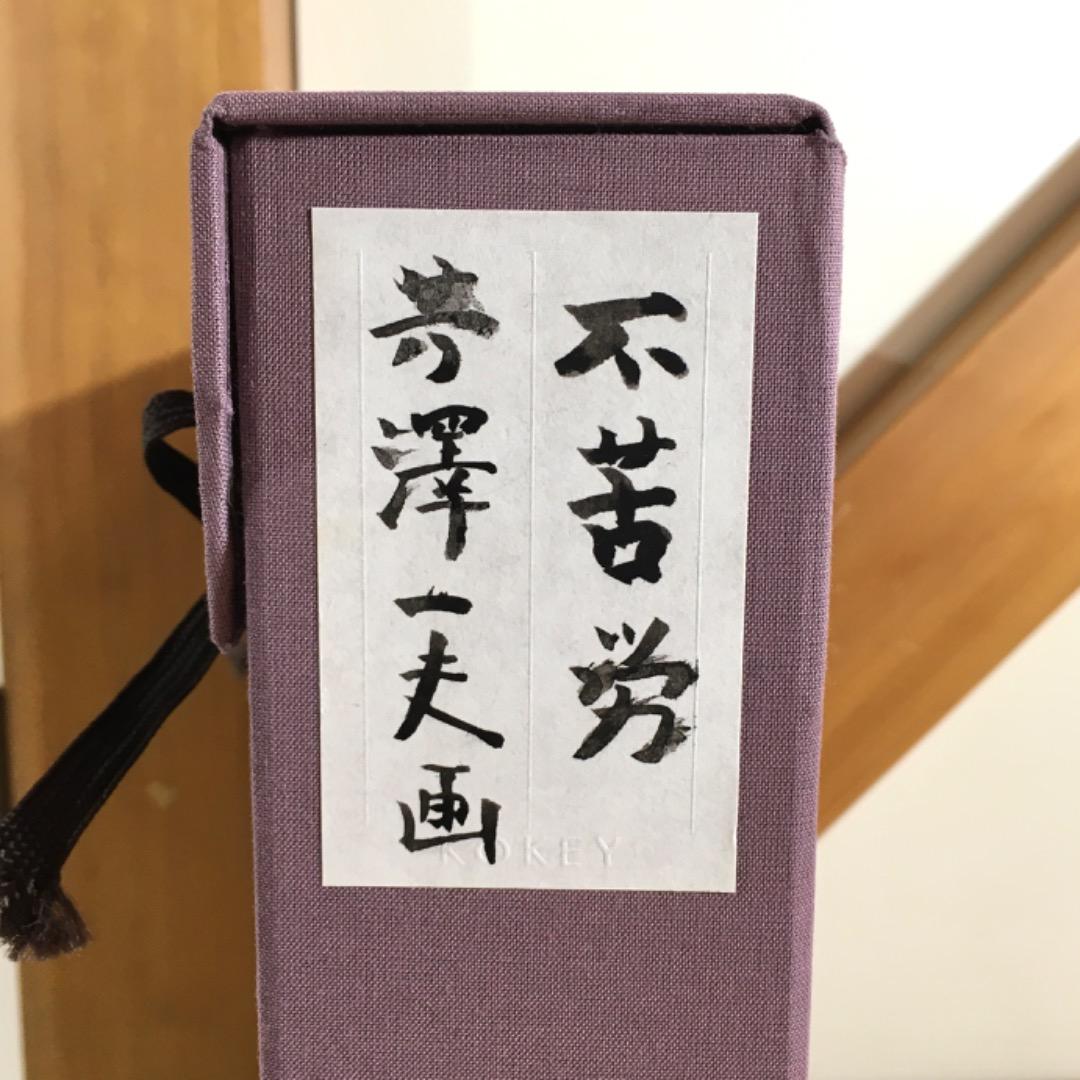 不苦労
芳澤一夫画
KOKEY